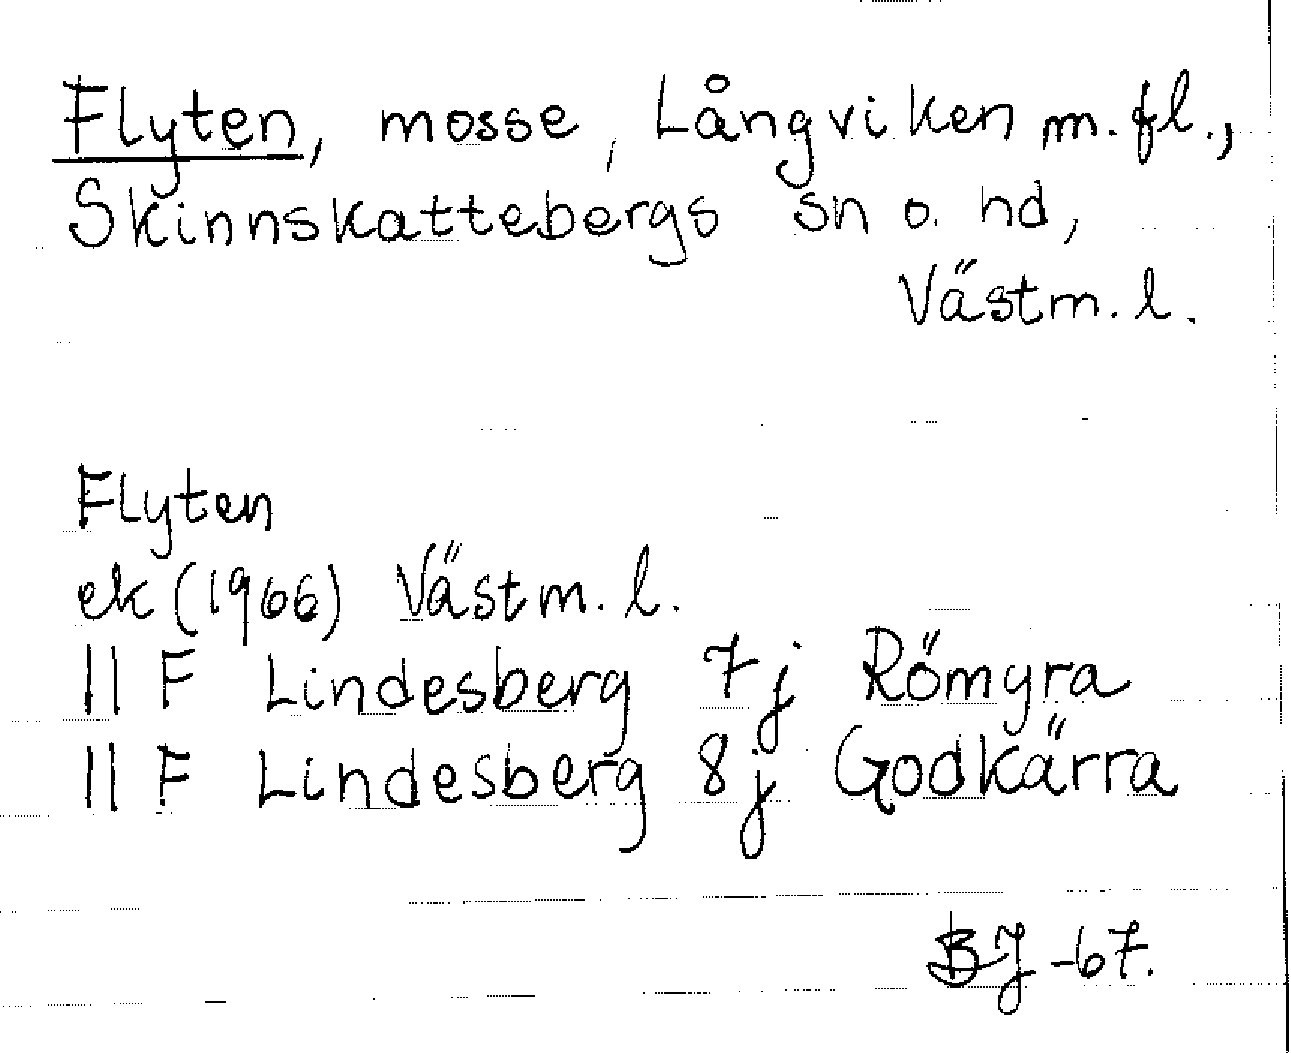 Flyten, mosse, Långviken m.fl.,
Skinnskattebergs sn o. hd,
Västm. l.
Flyten
ek (1966) Västm. l.
11 F Lindesberg 7j Römyra
11 F Lindesberg 8j Godkärra
BJ -67.